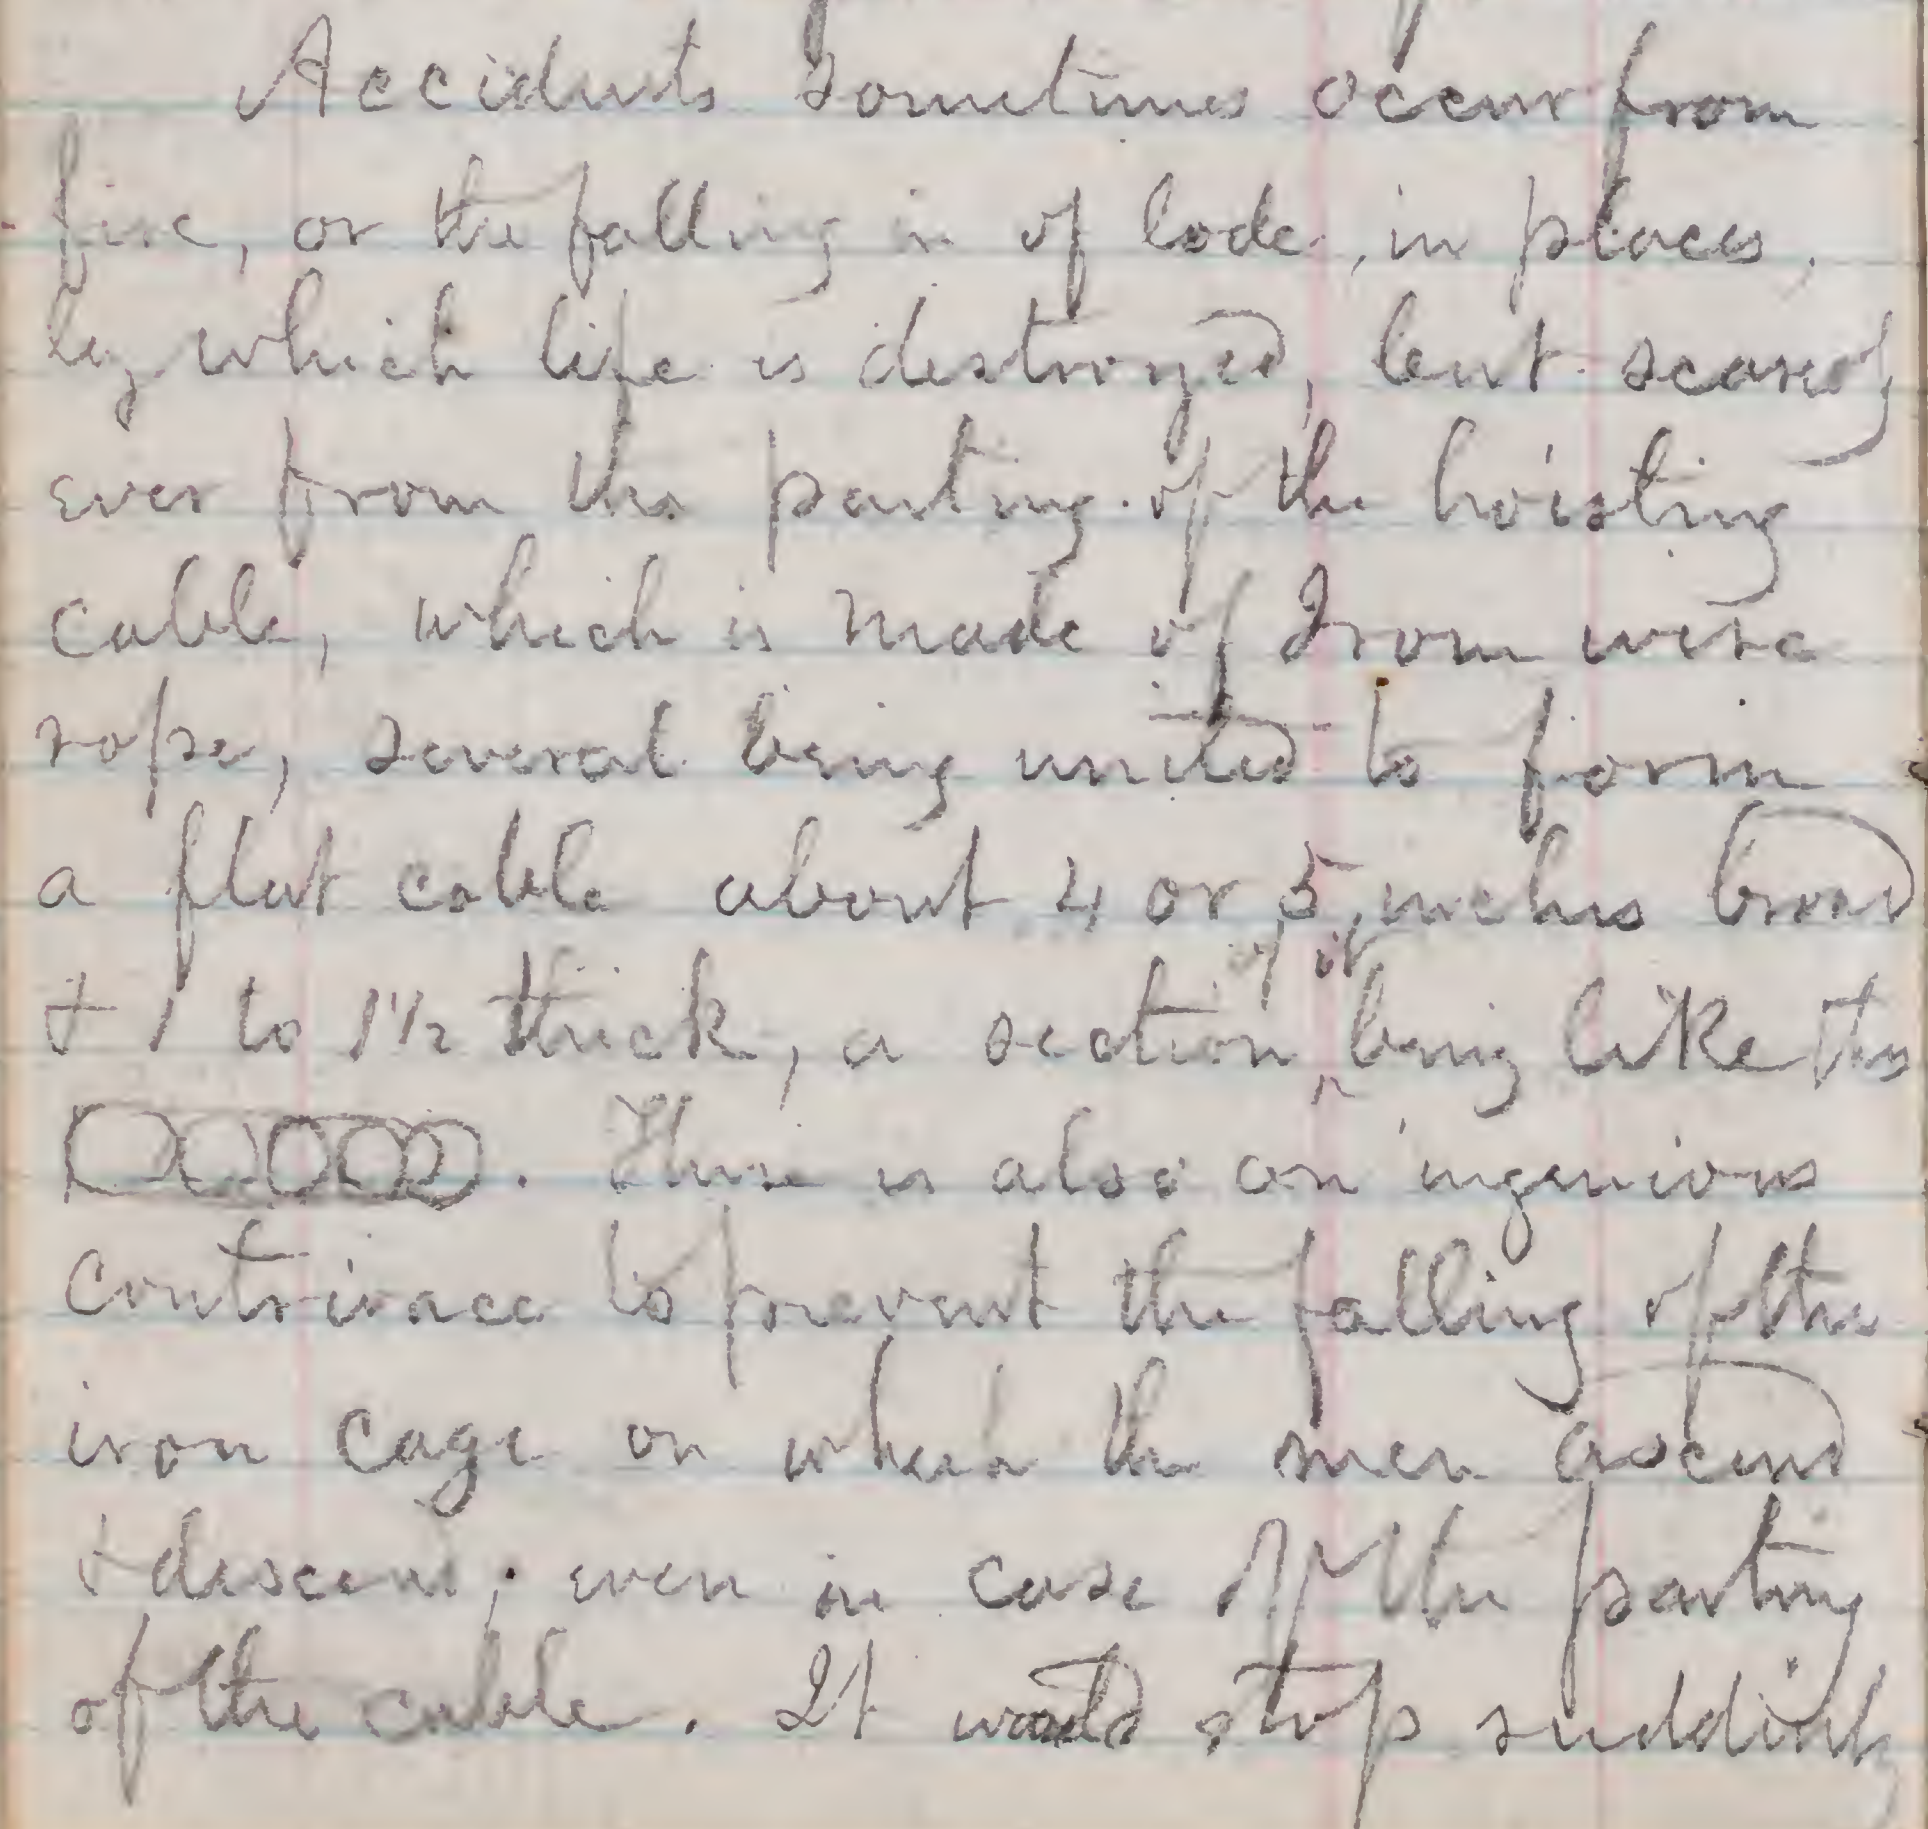 Accidents sometimes occur from
fire, or the falling in of lode, in places,
by which life is destroyed, but scarcely
ever from the parting of the hoisting
cable, which is made of Iron wire
rope, several being united to form
a flat cable about 4 or 5 inches broad
+ 1 to 1 1/2 thick, a section of it being like this
. There is also an ingenious
contrivace to prevent the falling of the
iron cage on which the men ascend
+ descend, even in case of the parting
of the cable. It would stop suddenly